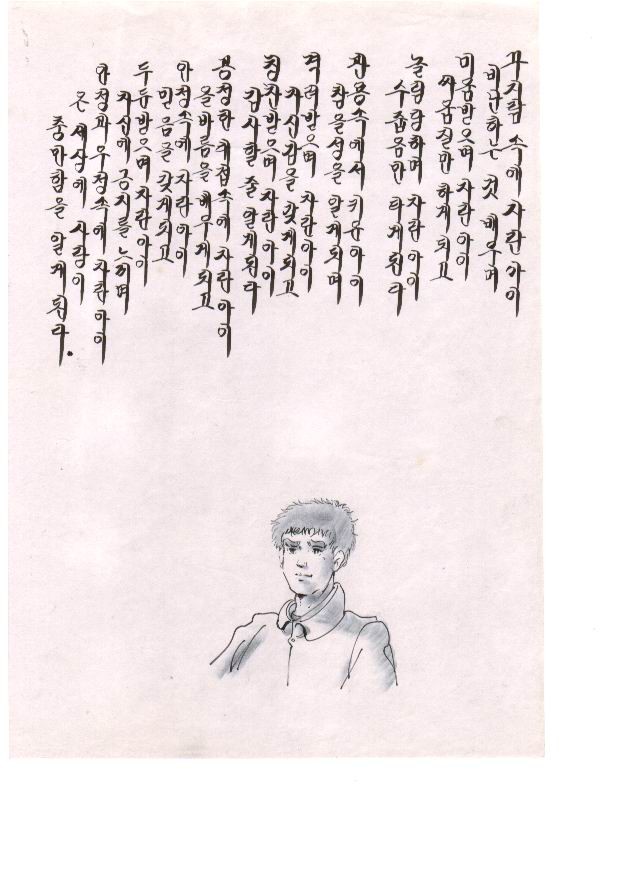 꾸지람 속에 자란 아이
비난하는 것 배우며
미움받으며 자란 아이
싸움질만 하게되고
놀림당하며 자란 아이
수줍음만 타게된다
관용속에서 키운아이
참을성을 알게되며
격려받으며 자란아이
자신감을 갖게되고
칭찬받으며 자란아이
감사할 줄 알게된다
공정한 대접속에 자란 아이
올바름을 배우게 되고
안정속에 자란 아이
믿음을 갖게되고
두둔받으며 자란아이
자신에 긍지를 느끼며
인정과 우정속에 자란 아이
온 세상에 사랑이
충만함을 알게된다.